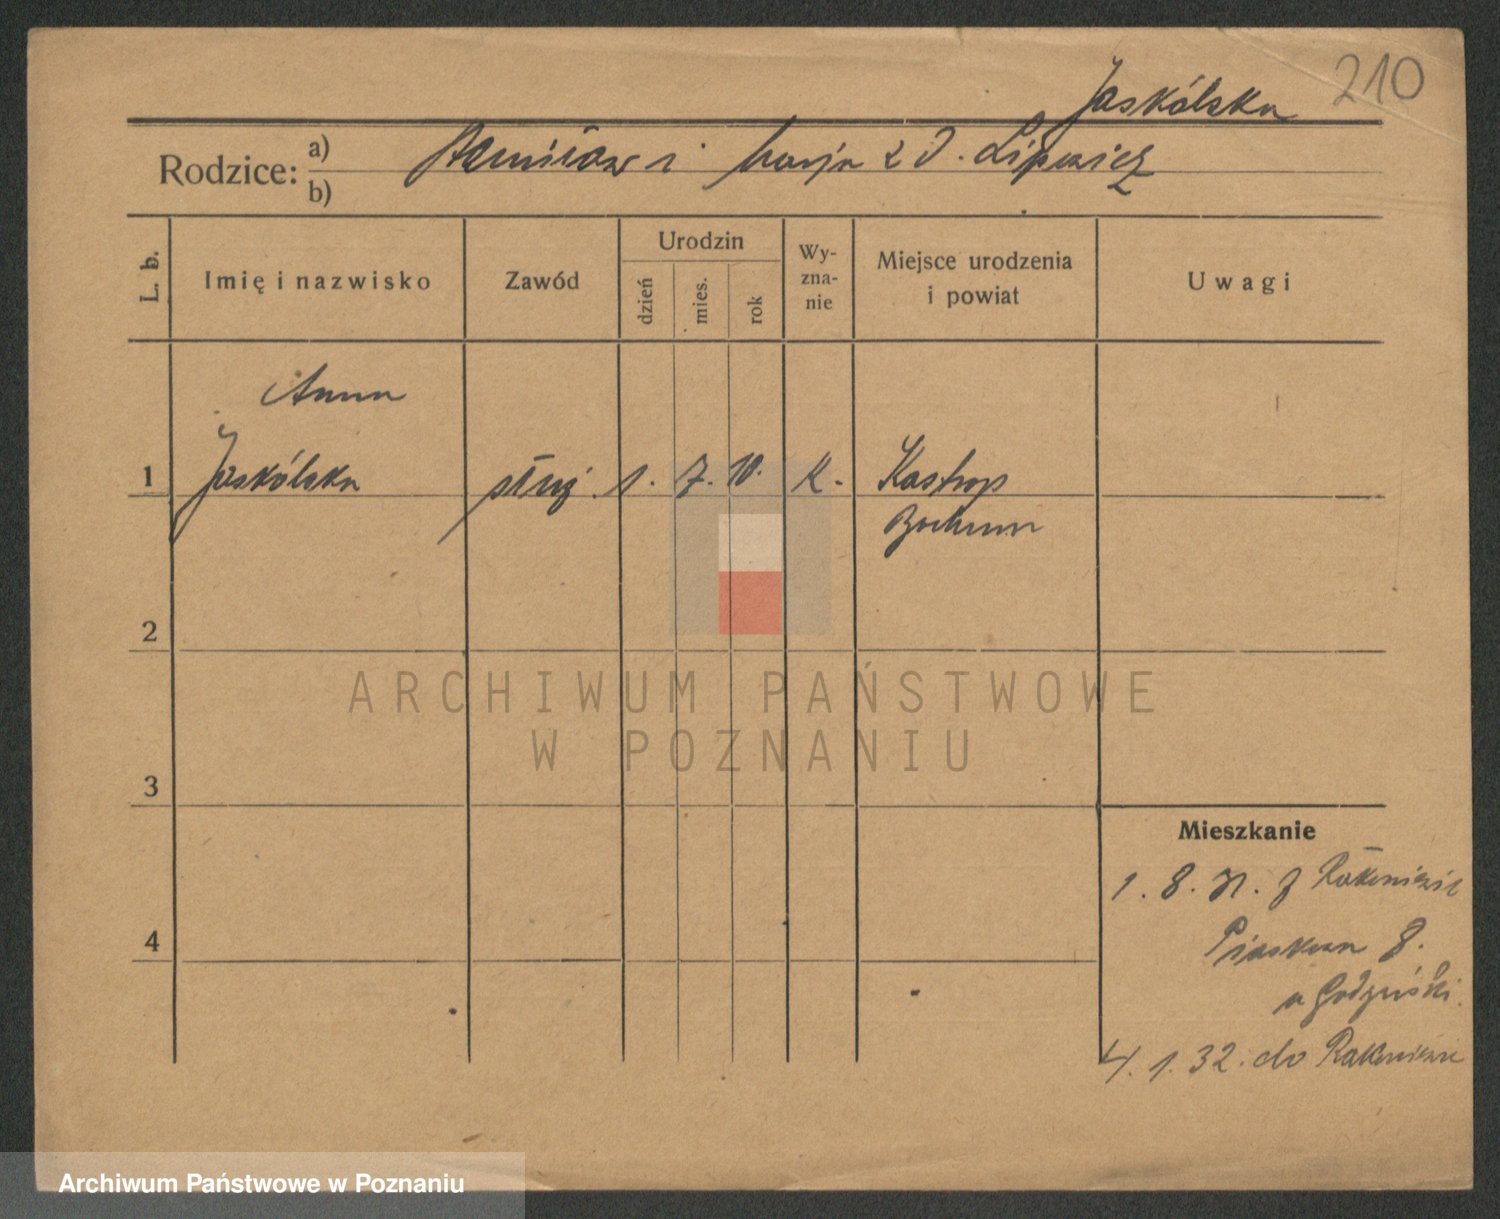 210
Jaskólska
Rodzice: a) b)
Stanisław i Marja z d. Lipowicz
L. b. Imię i nazwisko Zawód Urodzin dzień mies. rok Wy-zna-nie Miejsce urodzenia i powiat Uwagi
Anna
1 Jaskólska służ. 1. 7. 10. k. Kastrop
Bochum
2
ARCHIWUM PAŃSTWOWE
W POZNANIU
3
Mieszkanie
1. 8. 31. z Rakoniewic
4
Piaskowa 8.
u
4. 1. 32. do Rakoniewic
Archiwum Państwowe w Poznaniu